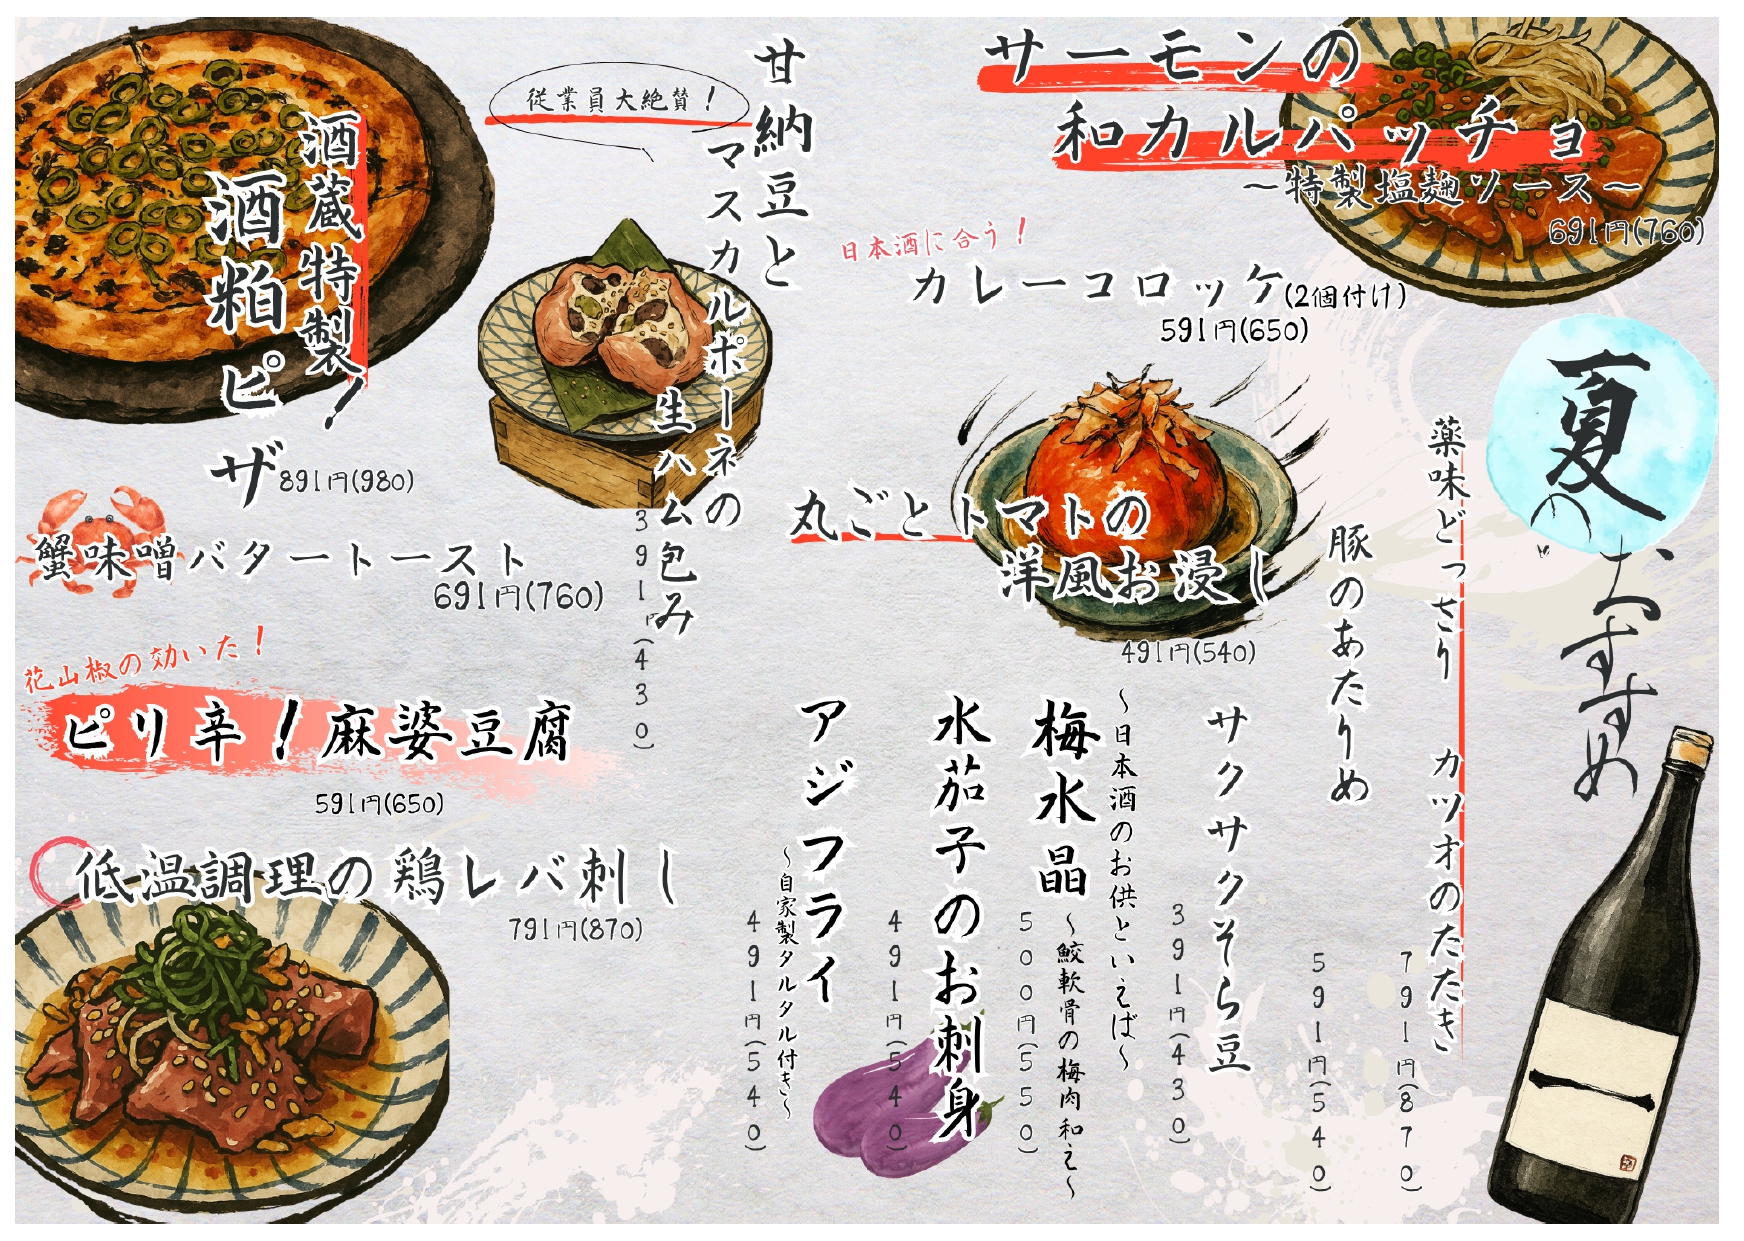 夏の
おすすめ
薬味どっさり カツオのたたき
791円(870)
豚のあたりめ
591円(540)
サクサクそら豆
391円(430)
〜日本酒のお供といえば〜
梅水晶
〜鮫軟骨の梅肉和え〜
500円(550)
水茄子のお刺身
491円(540)
アジフライ
〜自家製タルタル付き〜
491円(540)
サーモンの
和カルパッチョ
〜特製塩麹ソース〜
691円(760)
日本酒に合う！
カレーコロッケ(2個付け)
591円(650)
丸ごとトマトの
洋風お浸し
491円(540)
従業員大絶賛！
甘納豆と
マスカルポーネの
生ハム包み
391円(430)
酒蔵特製！
酒粕ピザ
891円(980)
蟹味噌バタートースト
691円(760)
花山椒の効いた！
ピリ辛！麻婆豆腐
591円(650)
低温調理の鶏レバ刺し
791円(870)
一